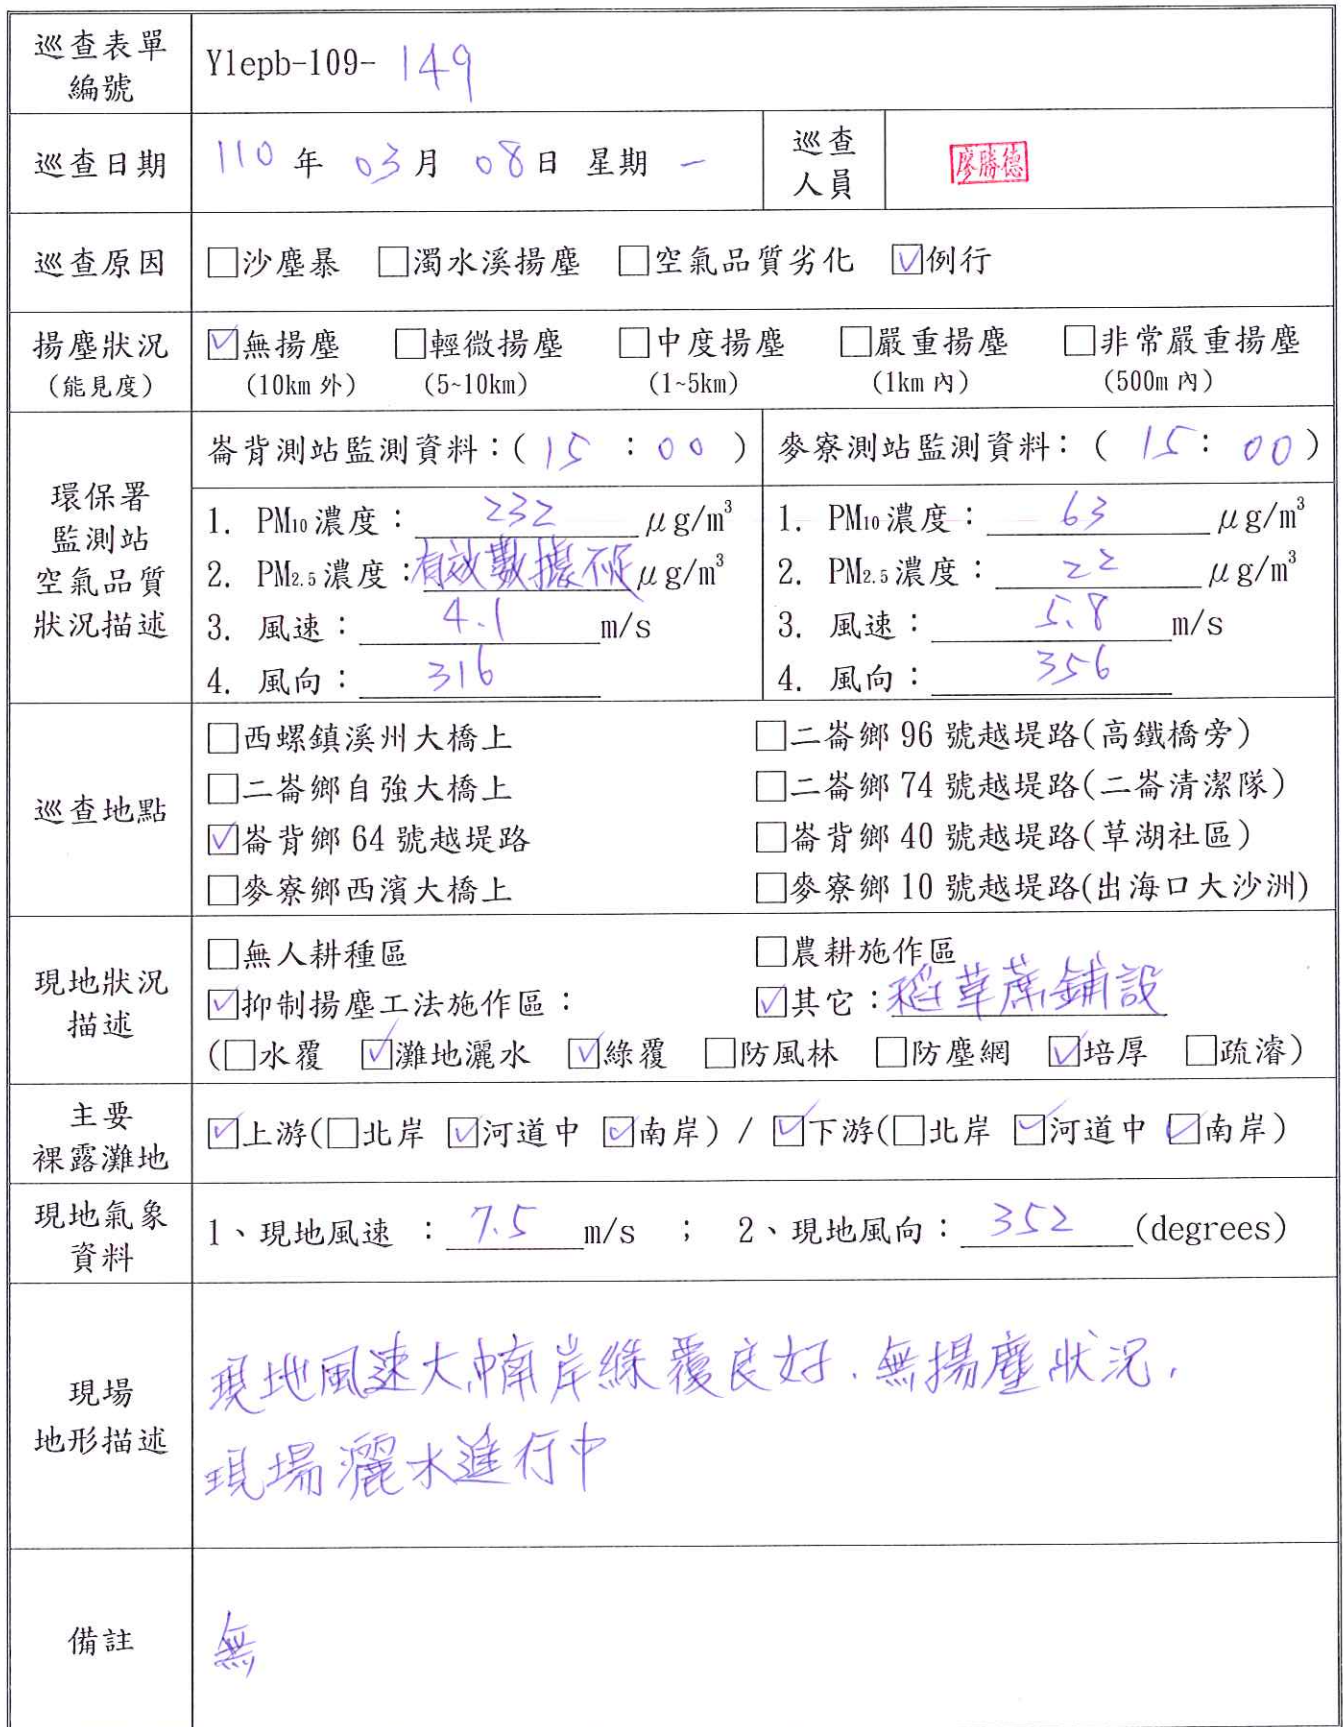 巡查表單
編號
Ylepb-109- 149
巡查日期
110 年 03 月 08 日 星期 一
巡查
人員
廖勝德
巡查原因
□沙塵暴 □濁水溪揚塵 □空氣品質劣化 ☑例行
揚塵狀況
(能見度)
☑無揚塵 □輕微揚塵 □中度揚塵 □嚴重揚塵 □非常嚴重揚塵
(10km 外) (5~10km) (1~5km) (1km 內) (500m 內)
環保署
監測站
空氣品質
狀況描述
崙背測站監測資料：( 15 : 00 )
1. PM10 濃度： 232 μg/m³
2. PM2.5 濃度：有效數據不足 μg/m³
3. 風速： 4.1 m/s
4. 風向： 316
麥寮測站監測資料： ( 15 : 00 )
1. PM10 濃度： 63 μg/m³
2. PM2.5 濃度： 22 μg/m³
3. 風速： 5.8 m/s
4. 風向： 356
巡查地點
□西螺鎮溪州大橋上 □二崙鄉 96 號越堤路(高鐵橋旁)
□二崙鄉自強大橋上 □二崙鄉 74 號越堤路(二崙清潔隊)
☑崙背鄉 64 號越堤路 □崙背鄉 40 號越堤路(草湖社區)
□麥寮鄉西濱大橋上 □麥寮鄉 10 號越堤路(出海口大沙洲)
現地狀況
描述
□無人耕種區 □農耕施作區
☑抑制揚塵工法施作區： ☑其它：稻草蓆鋪設
(□水覆 ☑灘地灑水 ☑綠覆 □防風林 □防塵網 ☑培厚 □疏濬)
主要
裸露灘地
☑上游(□北岸 ☑河道中 ☑南岸) / ☑下游(□北岸 ☑河道中 ☑南岸)
現地氣象
資料
1、現地風速 ： 7.5 m/s ； 2、現地風向： 352 (degrees)
現場
地形描述
現地風速大,南岸綠覆良好、無揚塵狀況,
現場灑水進行中
備註
無